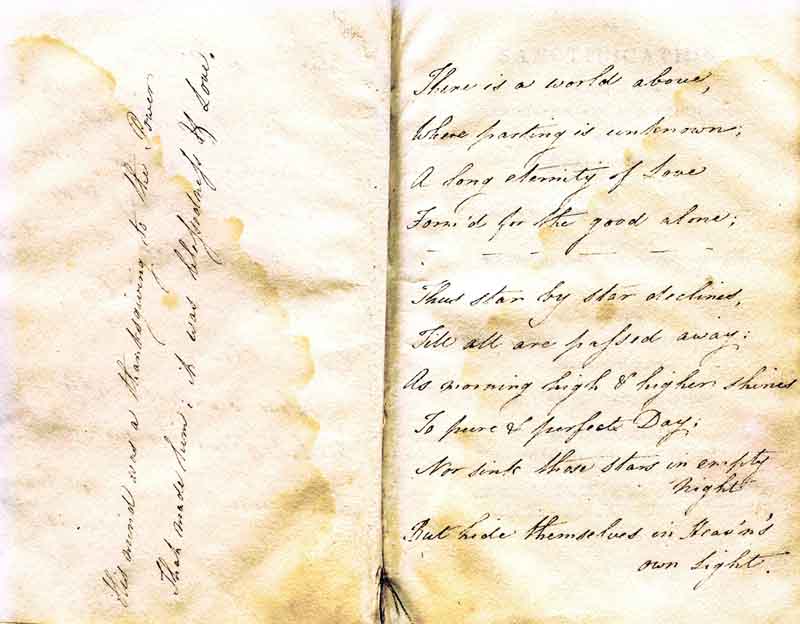 His mind was a thanksgiving to the Power
That made him; it was blessedness & Love.
There is a world above,
Where parting is unknown;
A long eternity of Love
Form'd for the good alone;
Thus star by star declines,
Till all are passed away:
As morning high & higher shines
To pure & perfect Day;
Nor sink those stars in empty
night
But hide themselves in Heav'n's
own light.